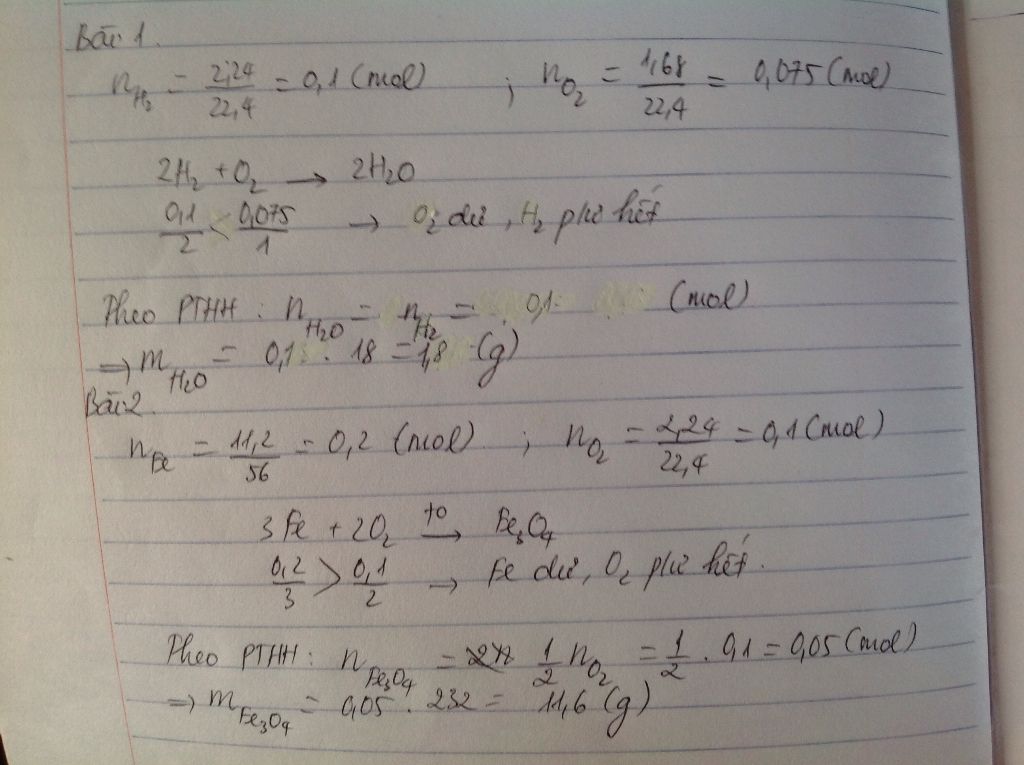 Bài 1.
n_H₂ = 2,24/22,4 = 0,1 (mol) ; n_O₂ = 1,68/22,4 = 0,075 (mol)
2H₂ + O₂ → 2H₂O
0,1/2 < 0,075/1 → O₂ dư, H₂ pư hết
Theo PTHH : n_H₂O = n_H₂ = 0,1 (mol)
⇒ m_H₂O = 0,1 . 18 = 1,8 (g)
Bài 2.
n_Fe = 11,2/56 = 0,2 (mol) ; n_O₂ = 2,24/22,4 = 0,1 (mol)
3Fe + 2O₂ →(to) Fe₃O₄
0,2/3 > 0,1/2 → Fe dư, O₂ pư hết.
Theo PTHH : n_Fe₃O₄ = 1/2 n_O₂ = 1/2 . 0,1 = 0,05 (mol)
⇒ m_Fe₃O₄ = 0,05 . 232 = 11,6 (g)